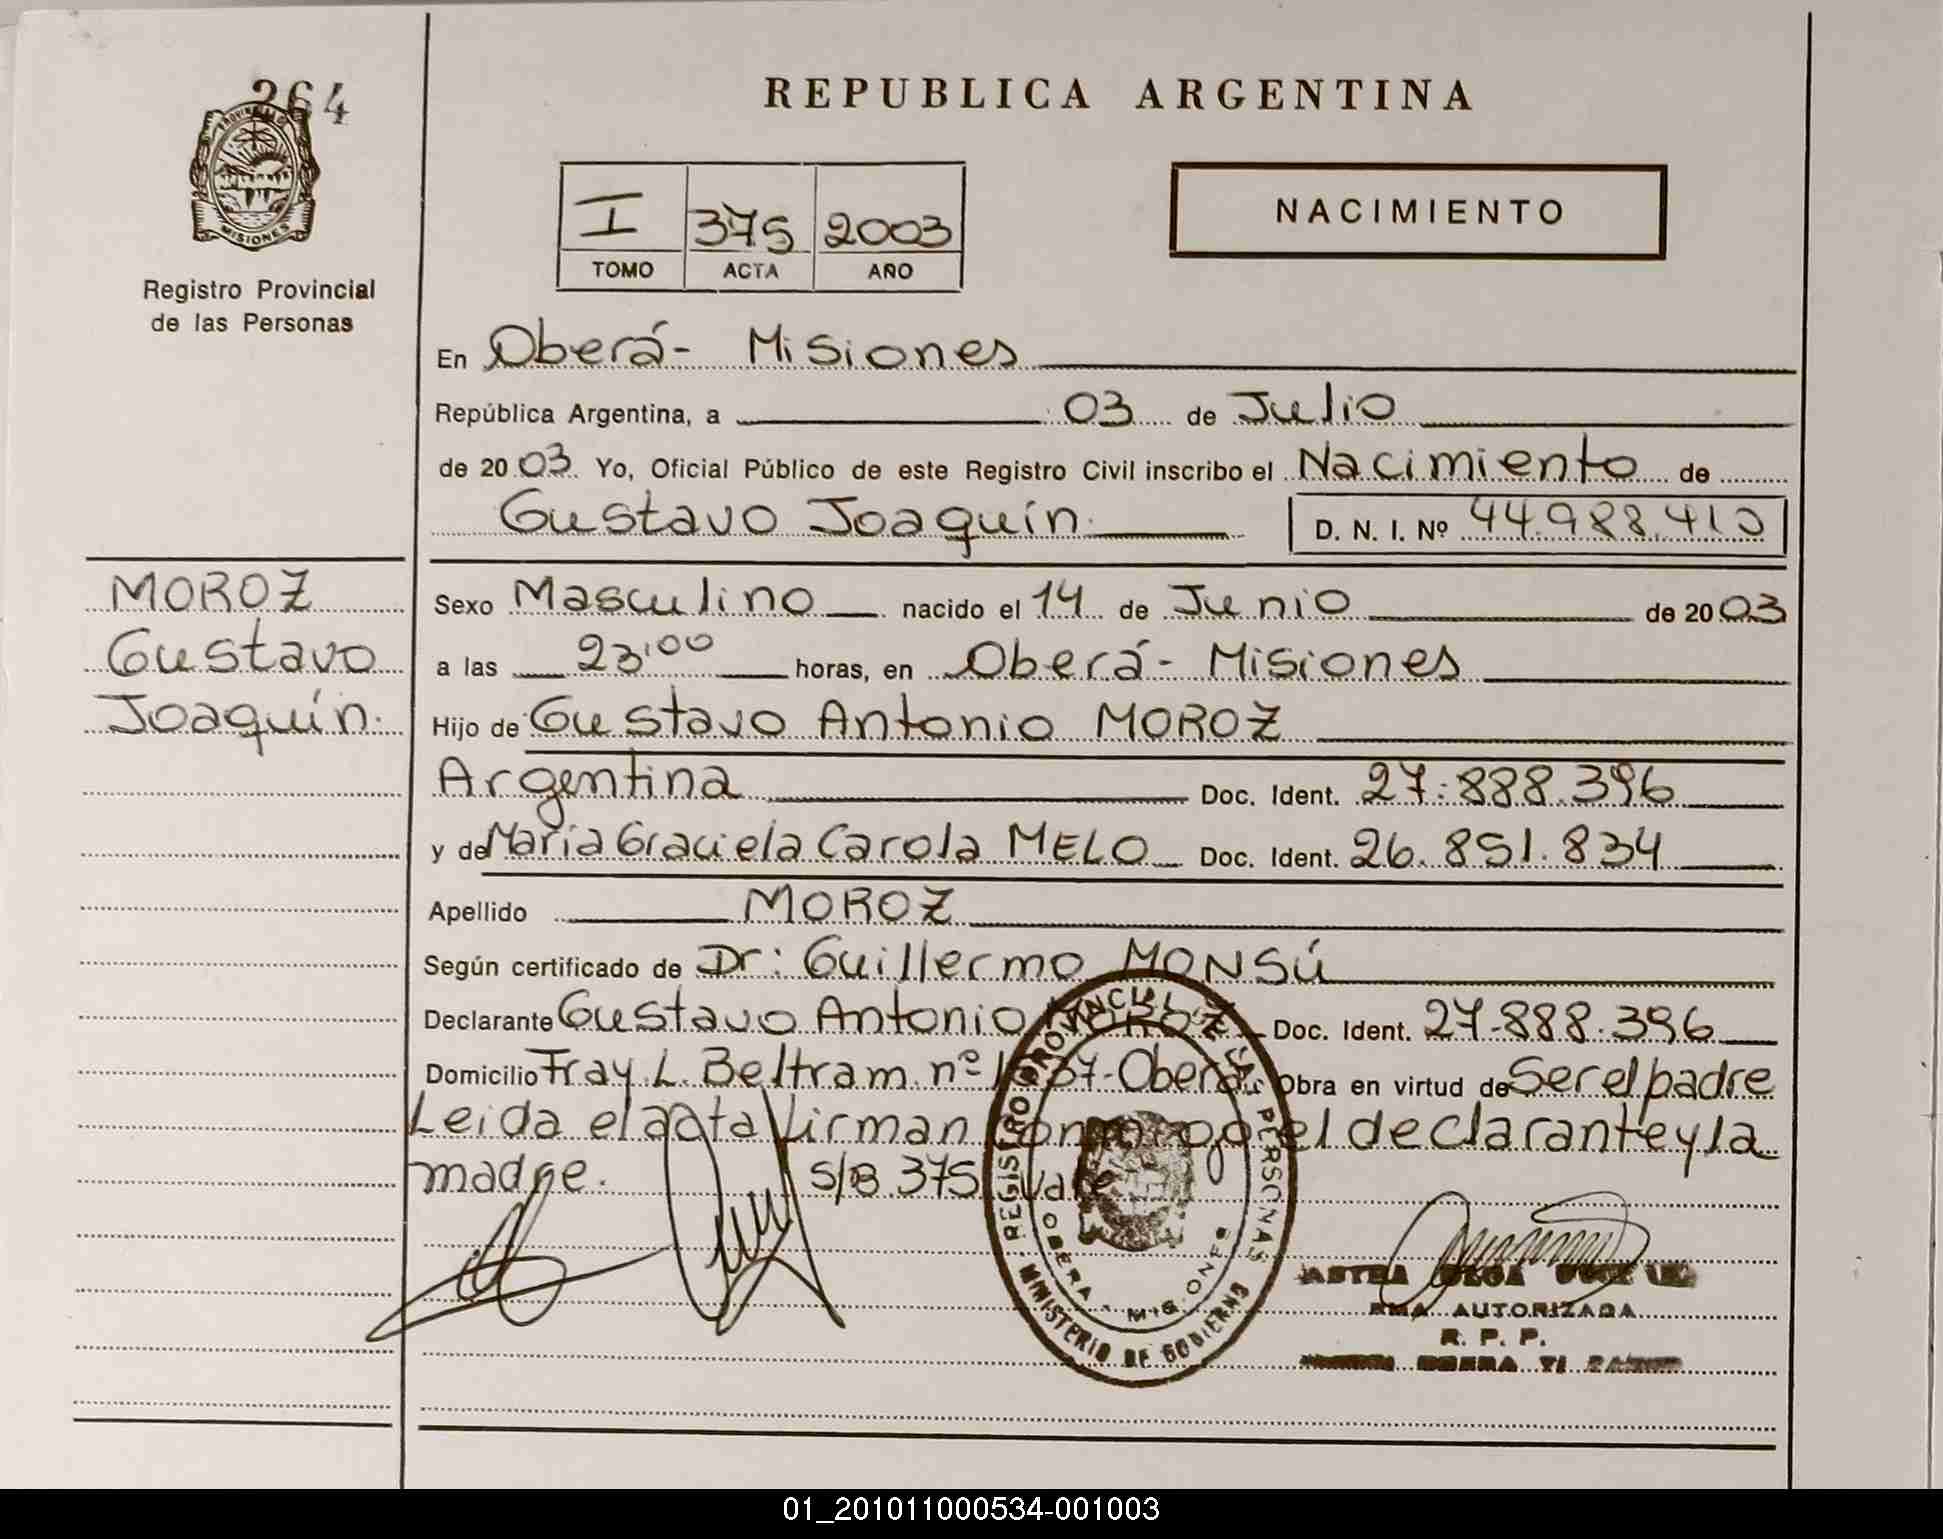 264
PROVINCIA DE
MISIONES
Registro Provincial
de las Personas
REPUBLICA ARGENTINA
I 375 2003
TOMO ACTA AÑO
NACIMIENTO
En Oberá- Misiones
República Argentina, a 03 de Julio
de 2003 Yo, Oficial Público de este Registro Civil inscribo el Nacimiento de
Gustavo Joaquín.
D. N. I. Nº 44.988.410
MOROZ
Gustavo
Joaquín.
Sexo Masculino nacido el 14 de Junio de 2003
a las 23:00 horas, en Oberá- Misiones
Hijo de Gustavo Antonio MOROZ
Argentina Doc. Ident. 27.888.396
y de María Graciela Carola MELO Doc. Ident. 26.851.834
Apellido MOROZ
Según certificado de Dr: Guillermo MONSÚ
Declarante Gustavo Antonio MOROZ Doc. Ident. 27.888.396
Domicilio Fray L. Beltram nº Oberá. Obra en virtud de Ser el padre
Leida el acta firman conmigo el declarante y la
madre. S/B 375 vale
REGISTRO PROVINCIAL DE LAS PERSONAS
OBERA - MISIONES
MINISTERIO DE GOBIERNO
AUTORIZADA
R. P. P.
01_201011000534-001003